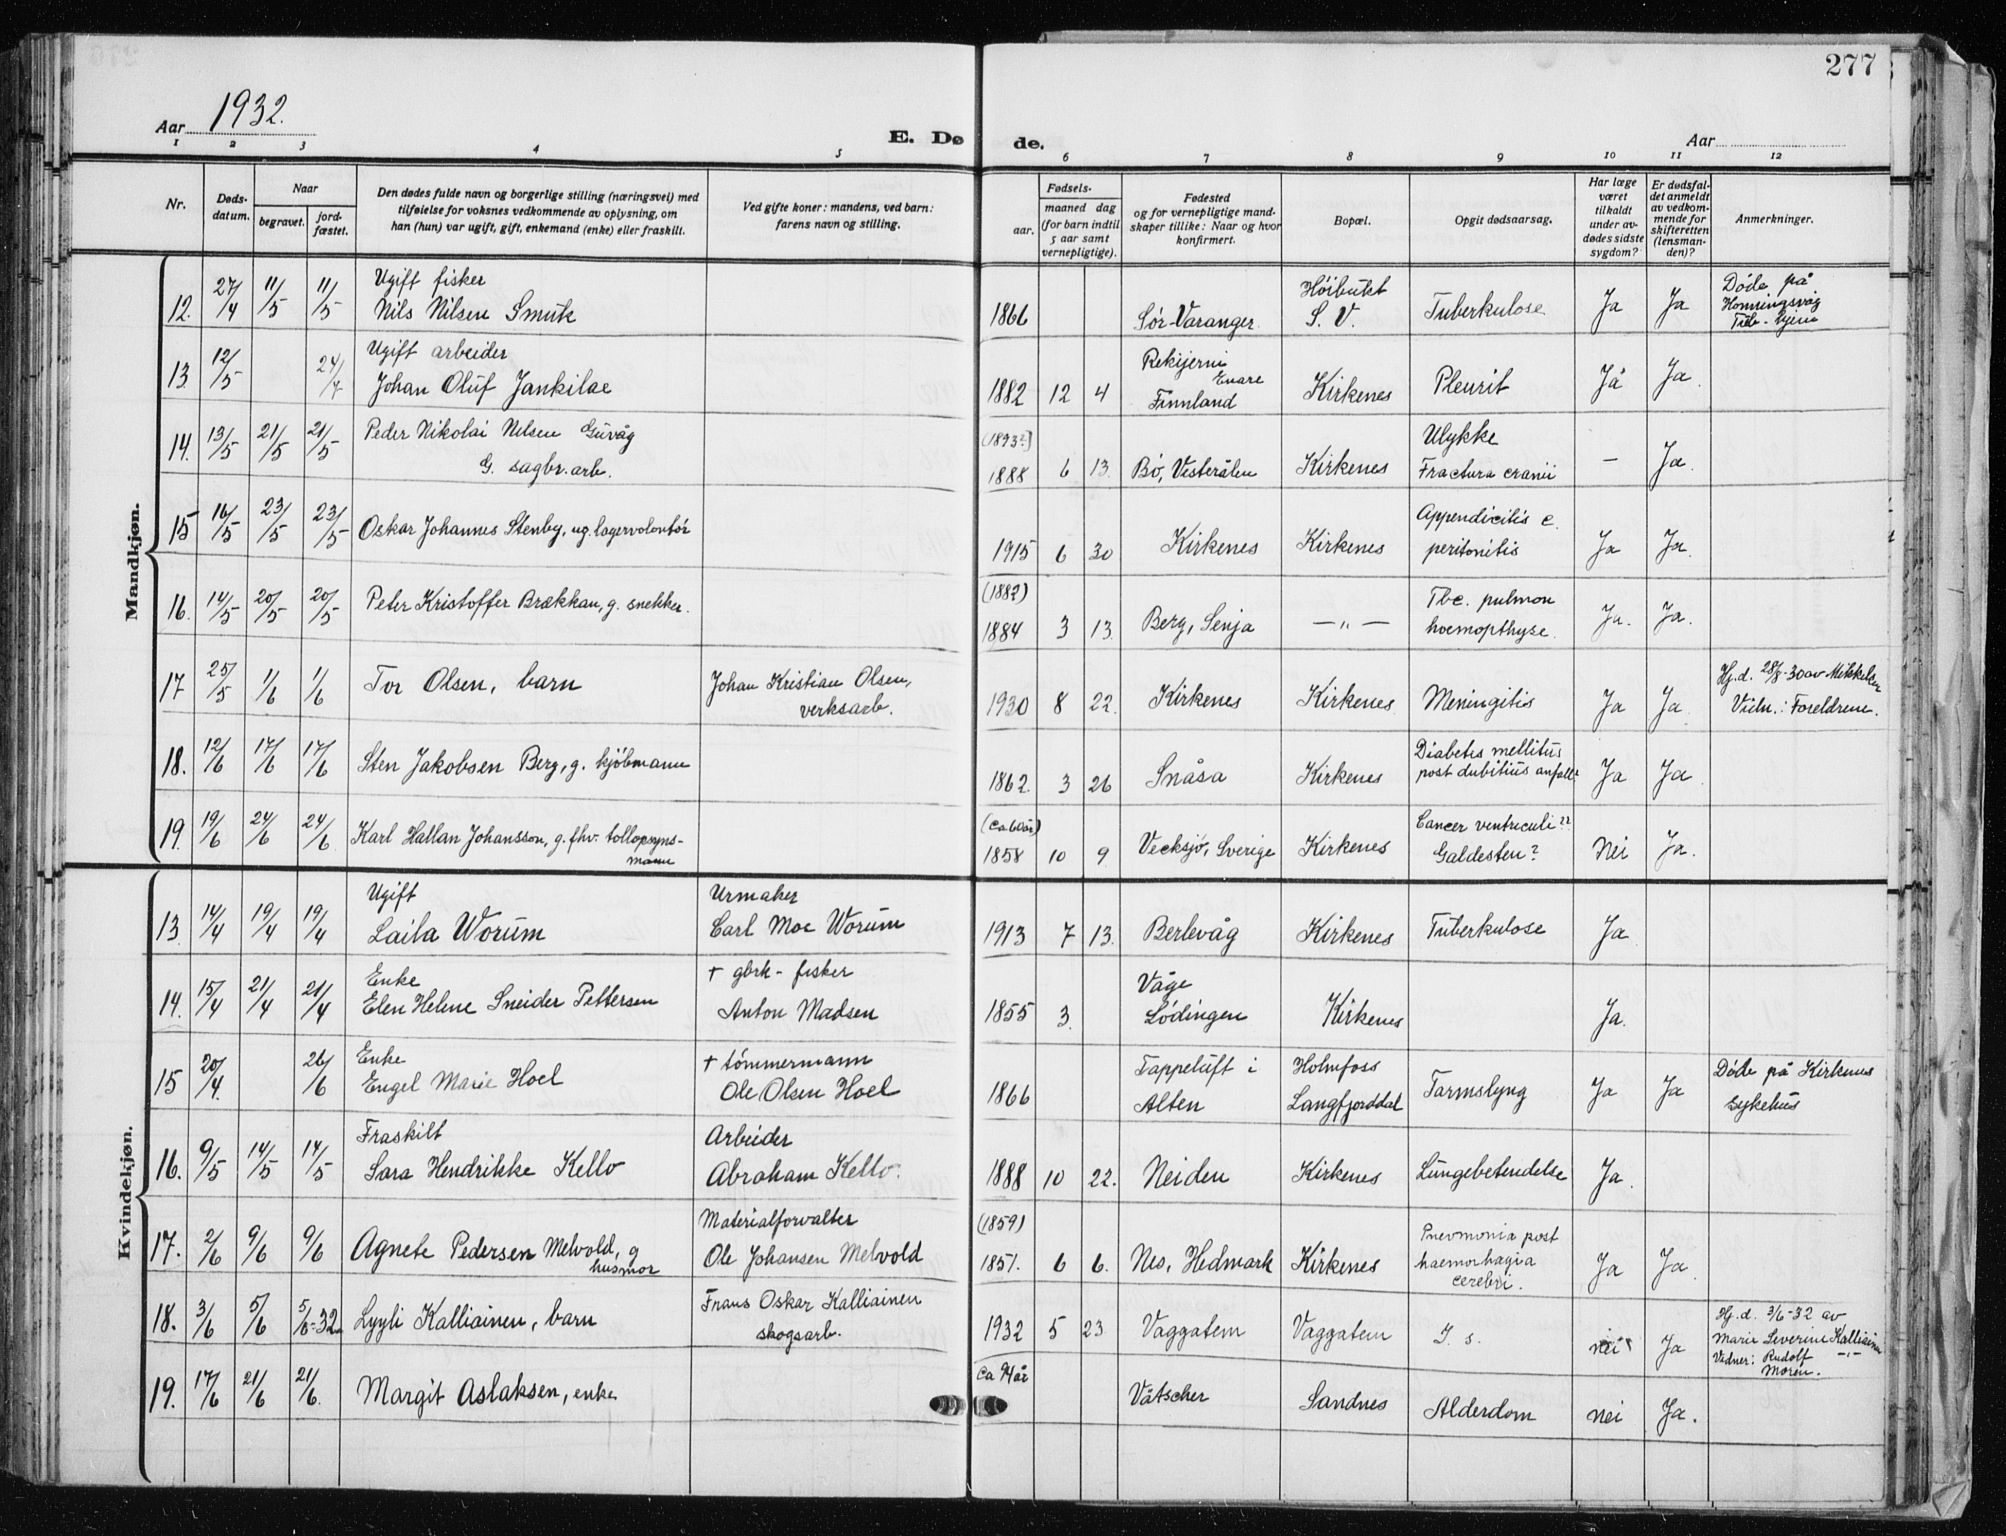 277
Aar 1932.
E. Døde.
Aar
1 2 3 4 5 6 7 8 9 10 11 12
Nr.
Dødsdatum.
Naar
begravet.
jordfæstet.
Den dødes fulde navn og borgerlige stilling (næringsvei) med
tilføielse for voksnes vedkommende av oplysning, om
han (hun) var ugift, gift, enkemand (enke) eller fraskilt.
Ved gifte koner: mandens, ved barn:
farens navn og stilling.
Fødsels-
aar.
maaned dag
(for barn indtil
5 aar samt
vernepligtige).
Fødested
og for vernepligtige mand-
skaper tillike: Naar og hvor
konfirmert.
Bopæl.
Opgit dødsaarsag.
Har læge
været
tilkaldt
under av-
dødes sidste
sygdom?
Er dødsfal-
det anmeldt
av vedkom-
mende for
skifteretten
(lensman-
den)?
Anmerkninger.
Mandkjøn.
12. 27/4 11/5 11/5 Ugift fisker
Nils Nilsen Smuk
1866 Sør-Varanger. Høibukt
S. V. Tuberkulose Ja Ja Døde på
Honningsvåg
13 12/5 24/4 Ugift arbeider
Johan Oluf Jankilae
1882 12 4 Rekijerni
Enare
Finnland Kirkenes Pleurit Ja Ja.
14. 13/5 21/5 21/5 Peder Nikolai Nilsen Guvåg
G. sagbr. arb.
(1893?)
1888 6 13. Bø, Vesterålen Kirkenes Ulykke
Fractura cranii — Ja.
15 16/5 23/5 23/5 Oskar Johannes Stenby, ug. lagervolontør
1915 6 30 Kirkenes Kirkenes Appendicitis c.
peritonitis Ja Ja.
16. 14/5 20/5 20/5 Peter Kristoffer Brækkan, g. snekker.
(1882)
1884 3 13. Berg, Senja — „ — Tbc. pulmon
hoemopthyse. Ja. Ja.
17 25/5 1/6 1/6 Tor Olsen, barn Johan Kristian Olsen,
verksarb.
1930 8 22. Kirkenes Kirkenes Meningitis Ja Ja. Hj.d. 28/8-30 av Mikkelsen
Vidn.: Foreldrene.
18. 12/6 17/6 17/6 Sten Jakobsen Berg, g. kjøbmann
1862. 3 26 Snåsa Kirkenes Diabetes mellitus
post dubitius anfall? Ja Ja
19. 19/6 24/6 24/6 Karl Hallan Johansson, g. fhv. tollopsyns-
mann
(ca 60 år)
1858 10 9 Vecksjø, Sverige Kirkenes Cancer ventriculi??
Galdesten? Nei Ja.
Kvindekjøn.
13. 14/4 19/4 19/4 Ugift
Laila Worum Urmaker
Carl Moe Worum
1913 7 13. Berlevåg Kirkenes Tuberkulose Ja
14. 15/4 21/4 21/4 Enke
Elen Helene Sneider Pettersen + gbrk- fisker
Anton Madsen
1855 3. Våge
Lødingen Kirkenes Ja.
15 20/4. 26/6 Enke
Engel Marie Hoel + tømmermann
Ole Olsen Hoel
1866 Tappeluft i
Alten Holmfoss
Langfjorddal Tarmslyng Ja Ja Døde på Kirkenes
Sykehus
16. 9/5 14/5 14/5 Fraskilt
Sara Hendrikke Kello Arbeider
Abraham Kello.
1888 10 22. Neiden Kirkenes Lungebetendelse Ja.
17. 2/6 9/6 9/6 Agnete Pedersen Melvold, g
husmor Materialforvalter
Ole Johansen Melvold
(1859)
1851. 6 6. Nes, Hedmark Kirkenes Pnevmonia post
haemorhagia
cerebri. Ja Ja.
18. 3/6 5/6 5/6-32 Lyyli Kalliainen, barn Frans Oskar Kalliainen
skogsarb.
1932 5 23 Vaggatem Vaggatem I s. nei Ja Hj.d. 3/6-32 av
Marie Severine Kalliainen
Vidner: Rudolf —„—
Moren.
19. 17/6 21/6 21/6. Margit Aslaksen, enke
ca 94 år Våtscher Sandnes Alderdom nei Ja.